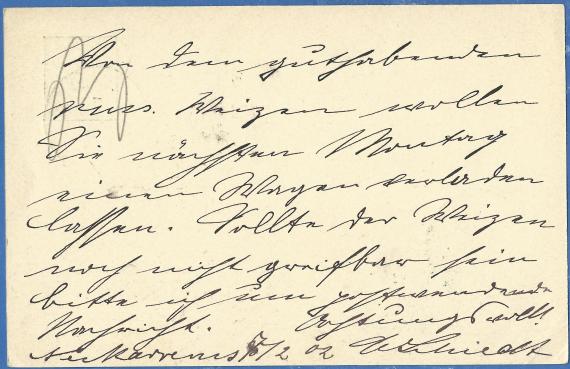 Von dem guthabenden
russ. Weizen wollen
Sie nächsten Montag
einen Wagen verladen
lassen. Sollte der Weizen
noch nicht greifbar sein
bitte ich um postwendende
Nachricht. Achtungsvoll
Neckarrems 5/2 02